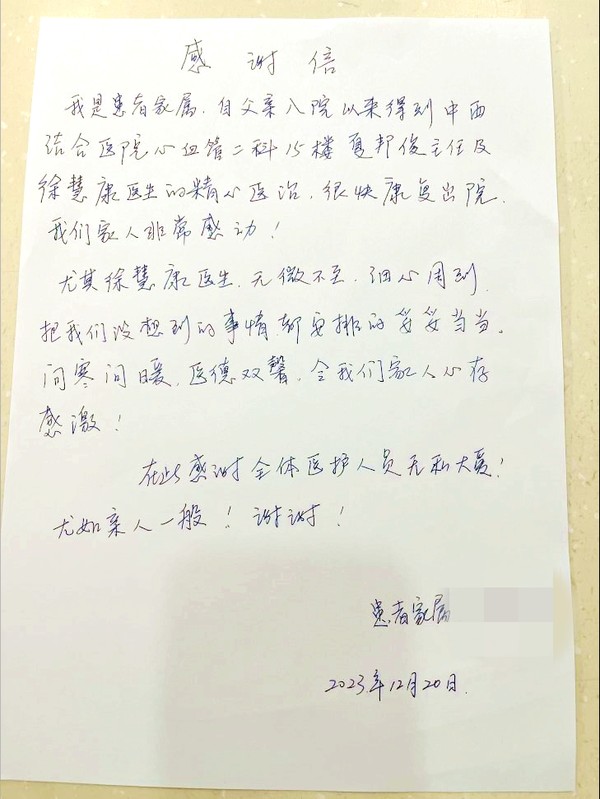 感谢信
我是患者家属，自父亲入院以来得到中西
结合医院心血管二科15楼夏邦俊主任及
徐慧康医生的精心医治，很快康复出院，
我们家人非常感动！
尤其徐慧康医生，无微不至，细心周到，
把我们没想到的事情都安排的妥妥当当。
问寒问暖，医德双馨，令我们家人心存
感激！
在此感谢全体医护人员无私大爱！
尤如亲人一般！谢谢！
患者家属
2023年12月20日.